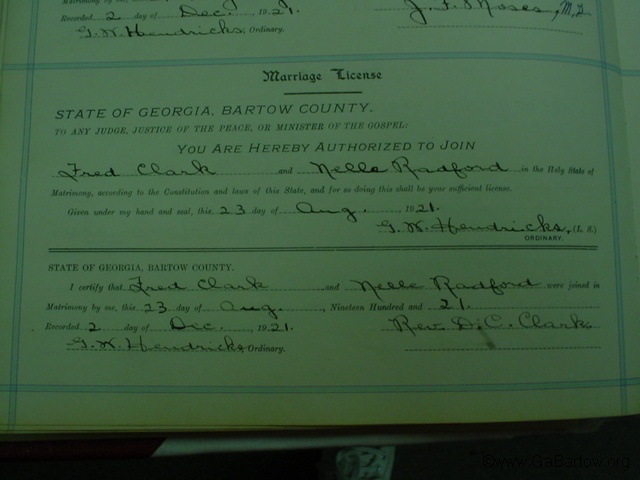 Recorded 2 day of Dec. 1921.
J. F. Moses, M.G.
G. W. Hendricks, Ordinary.
Marriage License
STATE OF GEORGIA, BARTOW COUNTY.
TO ANY JUDGE, JUSTICE OF THE PEACE, OR MINISTER OF THE GOSPEL:
YOU ARE HEREBY AUTHORIZED TO JOIN
Fred Clark and Nelle Radford in the Holy State of
Matrimony, according to the Constitution and laws of this State, and for so doing this shall be your sufficient license.
Given under my hand and seal, this 23 day of Aug. 1921.
G. W. Hendricks, (L. S.)
ORDINARY.
STATE OF GEORGIA, BARTOW COUNTY.
I certify that Fred Clark and Nelle Radford were joined in
Matrimony by me, this 23 day of Aug., Nineteen Hundred and 21.
Recorded 2 day of Dec. 1921. Rev. D. C. Clark
G. W. Hendricks, Ordinary.
©www.GaBartow.org